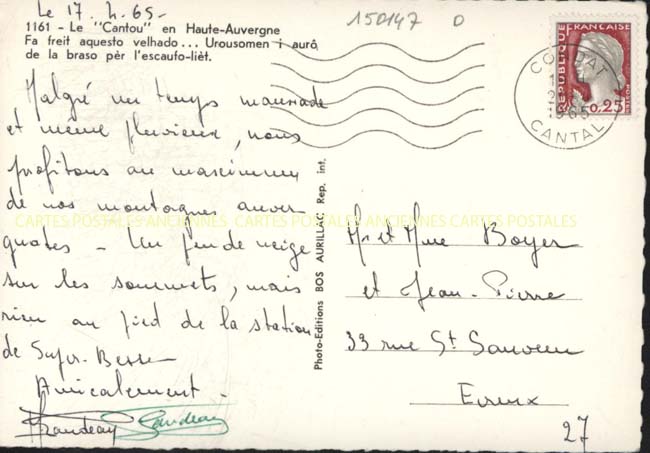 Le 17.4.65-
150147 0
1161 - Le "Cantou" en Haute-Auvergne
Fa freit aquesto velhado... Urousomen i aurô
de la braso pèr l'escaufo-lièt.
Malgré un temps maussade
et même pluvieux, nous
profitons au maximum
de nos montagnes auver-
gnates - Un peu de neige
sur les sommets, mais
rien au pied de la station
de Super-Besse
Amicalement -
CARTES POSTALES ANCIENNES CARTES POSTALES ANCIENNES CARTES POSTALES
Photo-Editions BOS AURILLAC Rep. int.
REPUBLIQUE FRANÇAISE
0,25
POSTES
CONDAT
1965
CANTAL
Mr et Mme Boyer
et Jean-Pierre
33 rue St Sauveur
Evreux
27